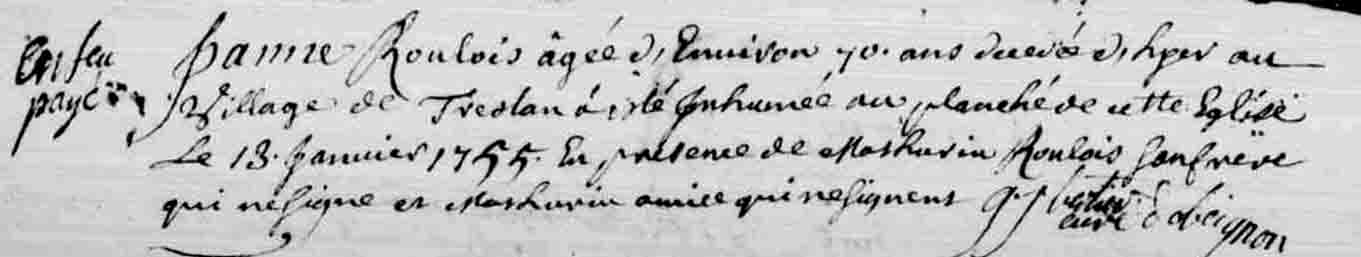 En feu
payé
Janne Roulois âgée d'Environ 70. ans decedé d'hyer au
Village de Treslan a esté Inhumée au planché de cette Eglise
Le 13. Janvier 1755. En presence de Mathurin Roulois son frere
qui ne signe et Mathurin qui ne signent
curé d'obeignon